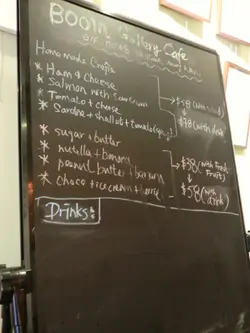 BOOM Gallery Cafe
Homemade Crepes
* Ham & Cheese
* Salmon with Sour cream
* Tomato + cheese
* Sardine + shallot + tomato
$58 (with salad)
$78 (with drink)
* sugar + butter
* nutella + banana
* peanut butter + banana
* choco + icecream + berries
$38 (with Fresh Fruit)
$58 (with drink)
Drinks: